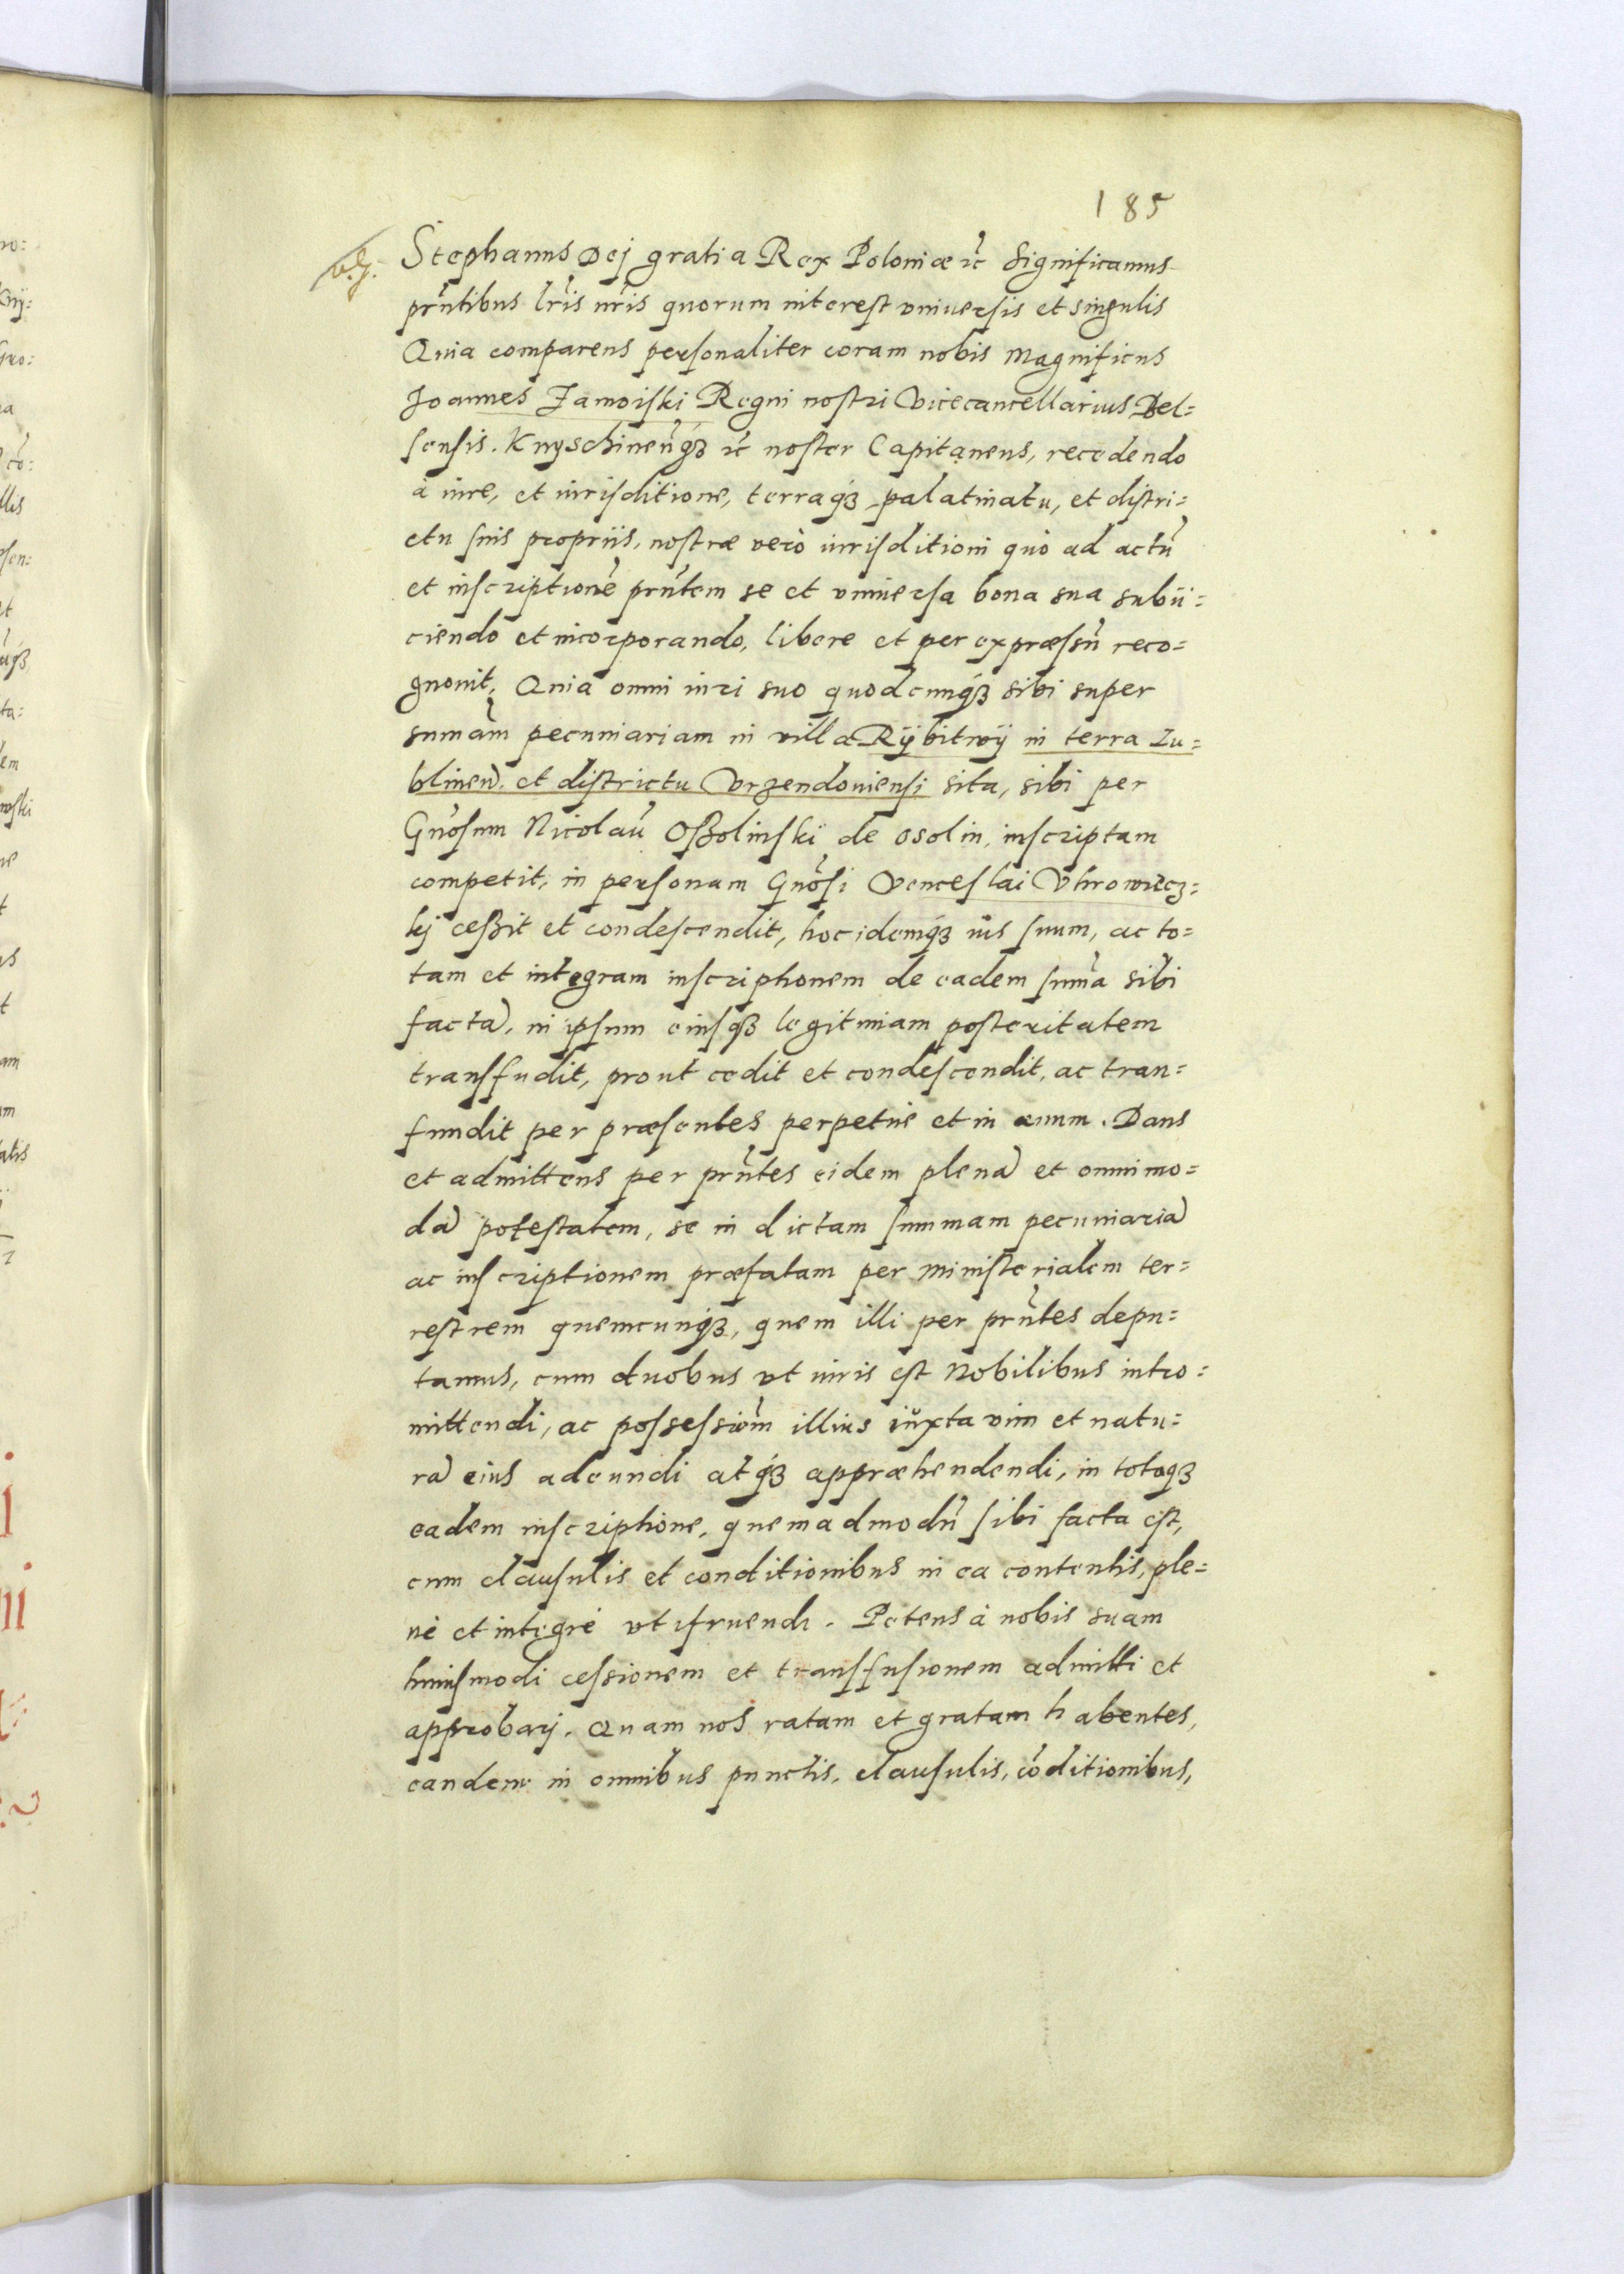 185
Stephanus Dej gratia Rex Poloniæ ꝛc̃ Significamus
prñtibus lr̃is nr̃is quorum interest vniuersis et singulis
Quia comparens personaliter coram nobis Magnificus
Joannes Zamoiski Regni nostri Vicecancellarius Bel=
sensis. Knyschineñq́ꝫ ꝛc̃ noster Capitaneus, recedendo
à iure, et iurisditione, terraq́ꝫ palatinatu, et distri=
ctu suis propriis, nostræ verò iurisditioni quò ad actũ
et inscriptionẽ prñtem se et vniuersa bona sua subii=
ciendo et incorporando, libere et per expræssũ reco=
gnouit, Quia omni iuri suo quodcunq́ꝫ sibi super
sumam̃ pecuniariam in villa Rÿbitwÿ in terra Lu=
blineñ. et districtu Vrzendouiensi sita, sibi per
Gñosum Nicolaũ Oßolinski de Osolin, inscriptam
competit, in personam Gñosi Venceslai Vhrowiecz=
kj ceßit et condescendit, hoc idemq́ꝫ ius suum, ac to=
tam et integram inscriptionem de eadem sum̃a sibi
factã, in ipsum eiusqꝫ legitimam posteritatem
transfudit, prout cedit et condescendit, ac tran=
fundit per præsentes perpetue et in æuum. Dans
et admittens per prñtes eidem plenã et omnimo=
dã potestatem, se in dictam summam pecuniariã
ac inscriptionem præfatam per ministerialem ter=
restrem quemcunq́ꝫ, quem illi per prñtes depu=
tamus, cum duobus vt iuris est Nobilibus intro=
mittendi, ac possessiom̃ illius iŭxta vim et natu=
rã eius adeundi atq́ꝫ appræhendendi, in totaqꝫ
eadem inscriptione, quemadmodũ sibi facta est,
cum clausulis et conditionibus in ea contentis, ple=
nè et integrè vtifruendi. Petens à nobis suam
huiusmodi cessionem et transfusionem admitti et
approbarj. Quam nos ratam et gratam habentes,
eandem in omnibus punctis, clausulis, cõditionibus,